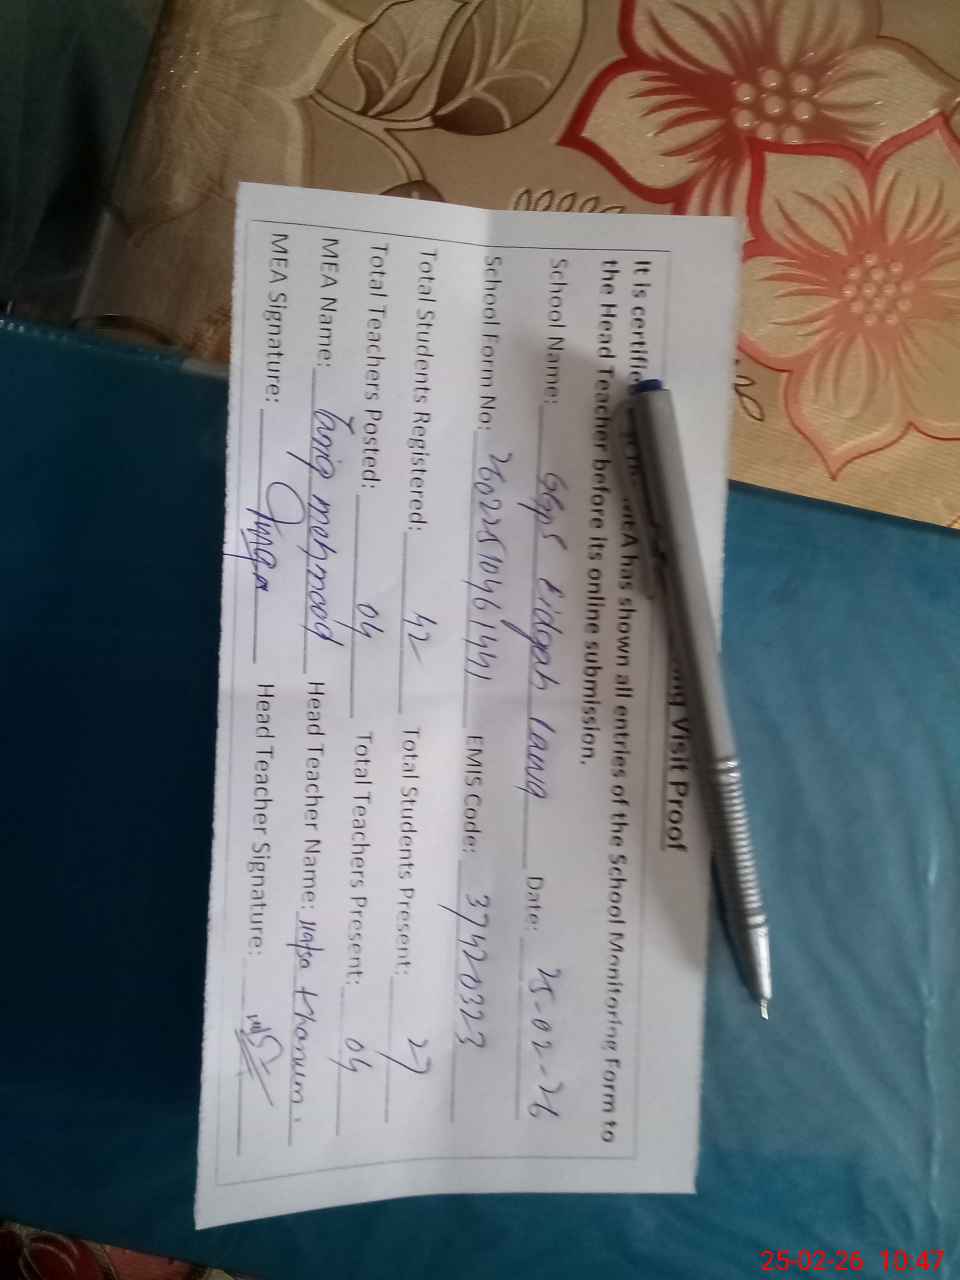 ing Visit Proof
It is certified that the MEA has shown all entries of the School Monitoring Form to
the Head Teacher before its online submission.
School Name: GGPS Eidgah Date: 25-02-26
School Form No: EMIS Code: 37420323
Total Students Registered: 42 Total Students Present: 27
Total Teachers Posted: 04 Total Teachers Present: 04
MEA Name: Tariq mehmood Head Teacher Name: Hafsa Khanum
MEA Signature: Head Teacher Signature:
25-02-26 10:47